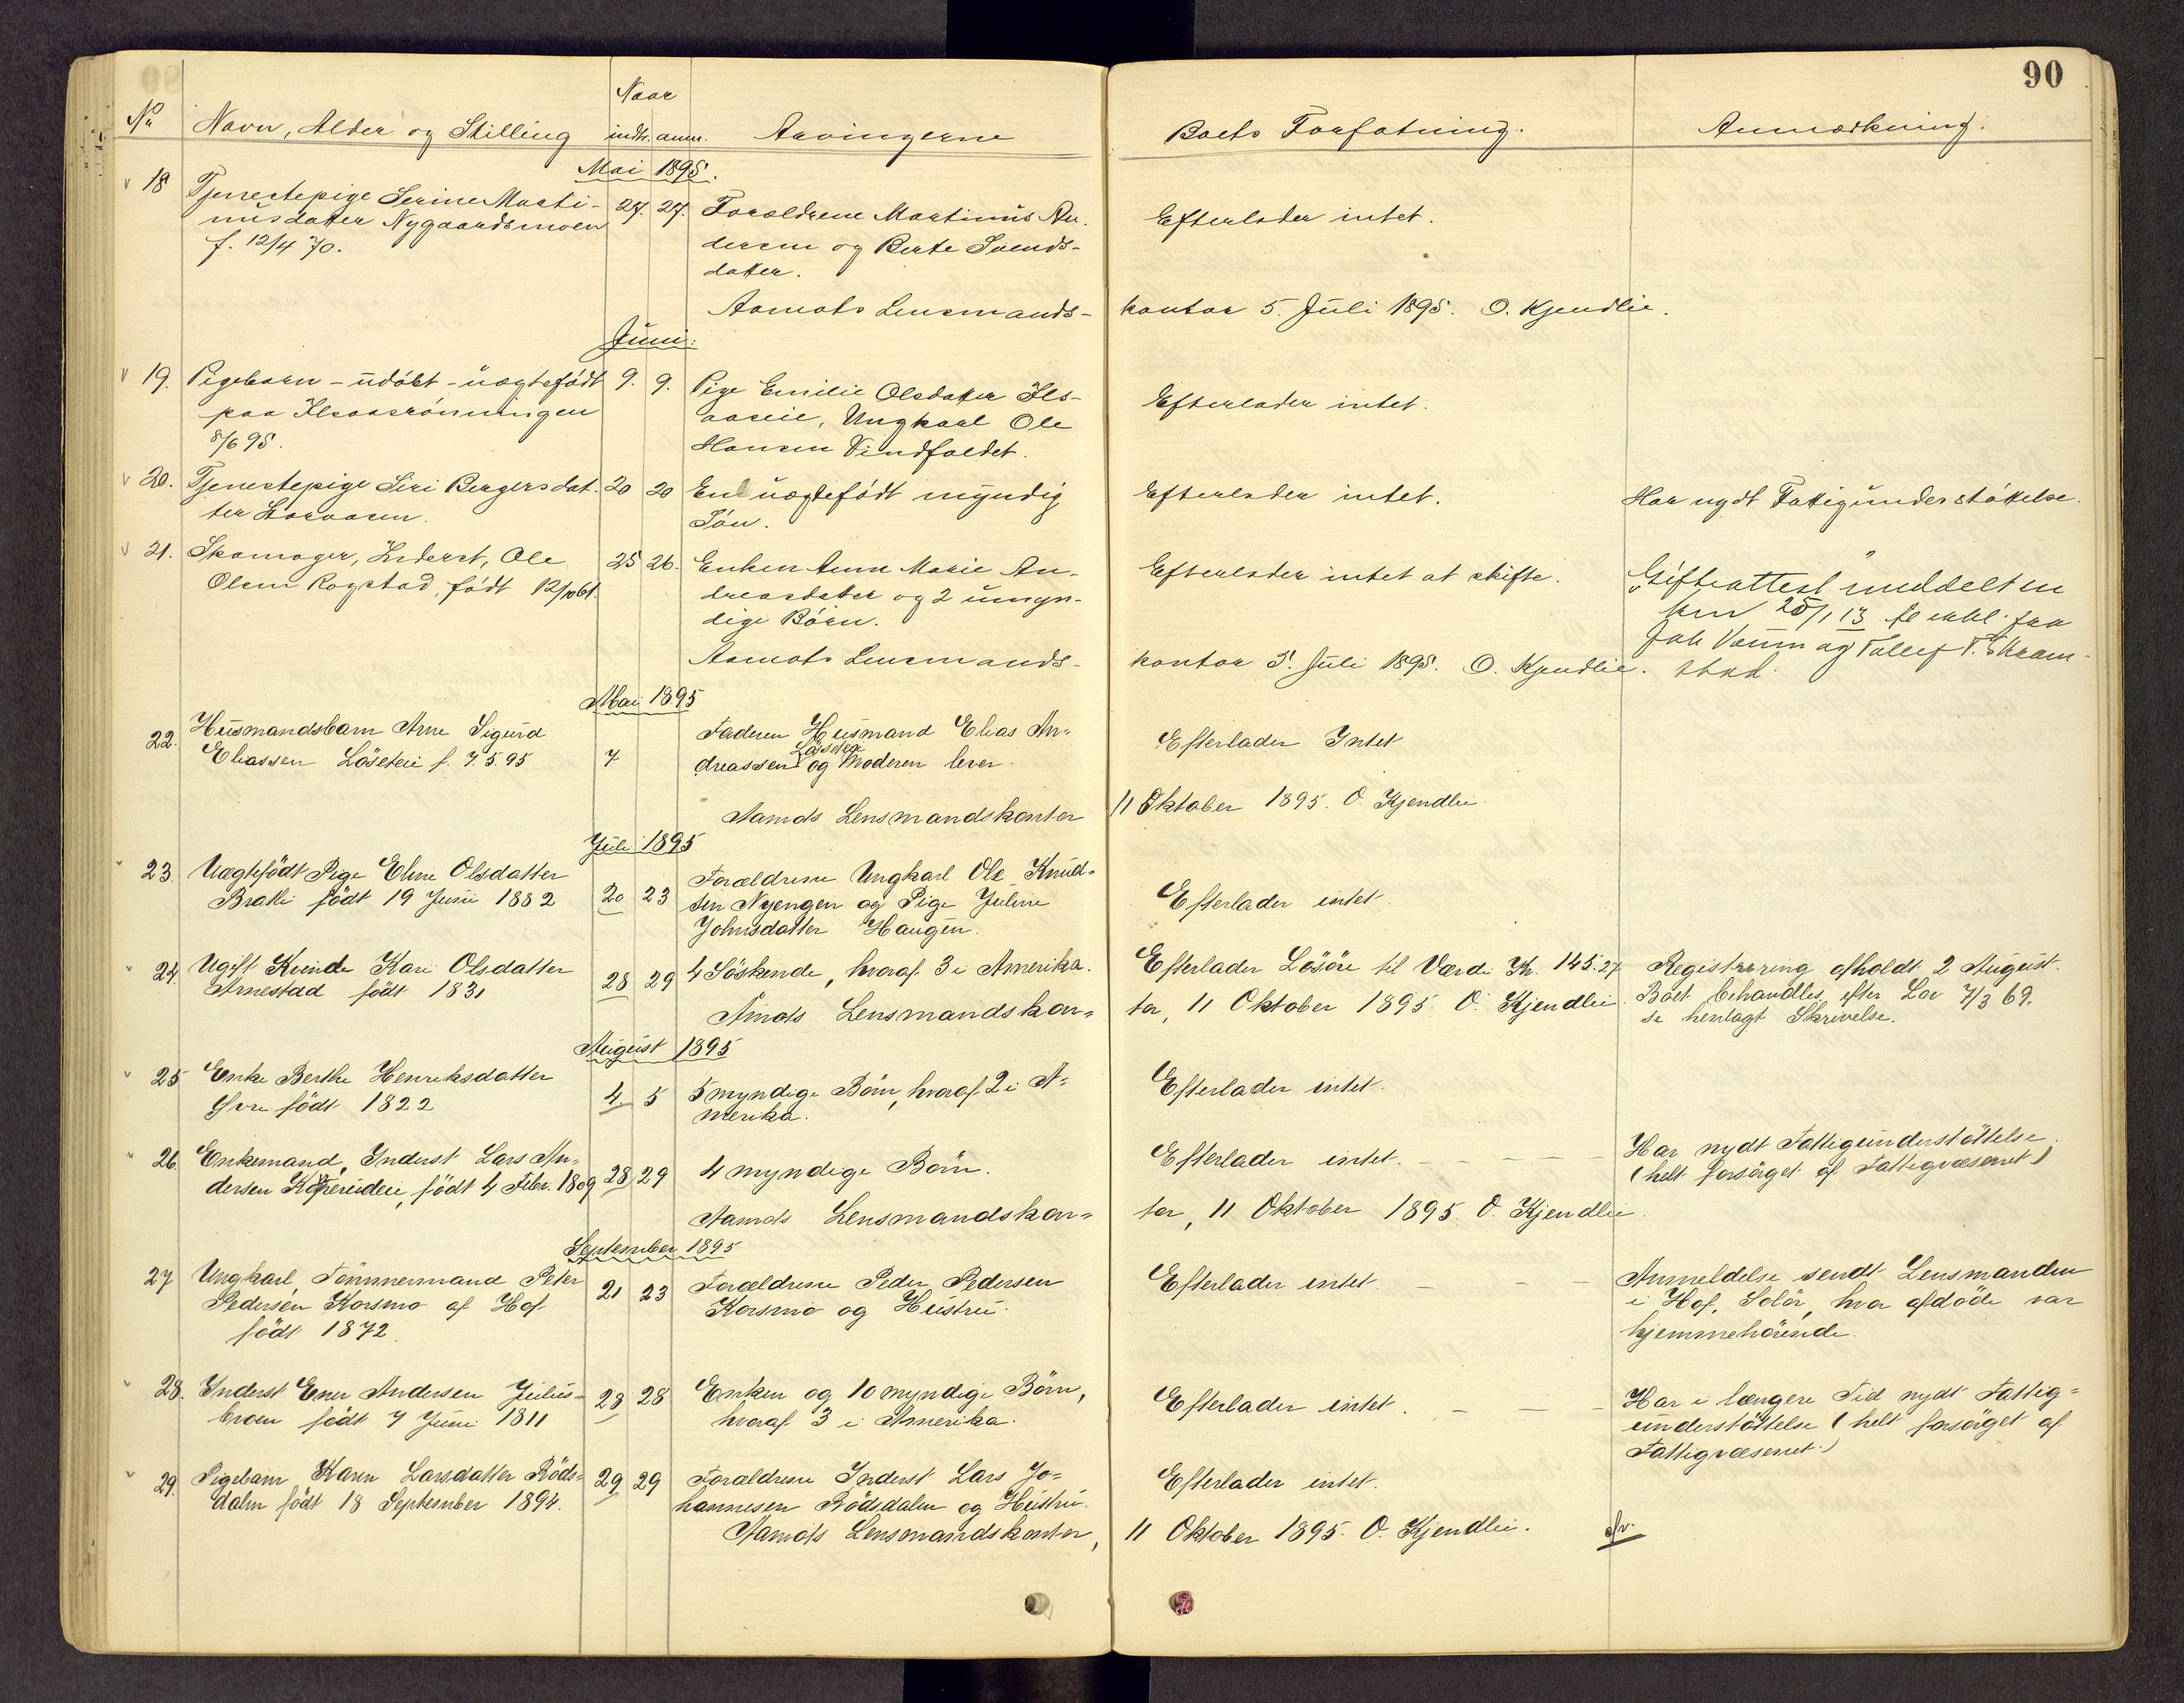 90
Naar
No Navn, Alder og Stilling indtr. anm. Arvingerne Boets Forfatning. Anmærkning.
Mai 1895.
18 Tjenestepige Serine Marti- 27. 27. Forældrene Martinus An-
nusdatter Nygaardsmoen dersen og Berte Svends- Efterlader intet.
f. 12/4 70. datter.
Aamots Lensmands- kontor 5. Juli 1895. O. Kjendlie.
Juni:
19. Pigebarn - udöbt - uægtefödt 9. 9. Pige Emilie Olsdatter Ils-
paa Ilsaasrönningen aaseie, Ungkarl Ole Efterlader intet.
8/6 95. Hansen Vindfaldet.
20. Tjenestepige Siri Bergersdat- 20 20 En uægtefödt myndig Efterlader intet. Har nydt Fattigunderstöttelse.
ter Storaasen. Sön.
21. Skomager, Inderst, Ole 25 26. Enken Anne Marie An- Efterlader intet at skifte. Gifteattest meddelt en
Olsen Rogstad, födt 12/10 61. dreasdatter og 2 umyn- km 25/1 13 fra
dige Börn. Joh Vaum og Tollef T. Skram-
Aamots Lensmands- kontor 5. Juli 1895. O. Kjendlie. stad.
Mai 1895
22. Husmandsbarn Arne Sigurd 7 Faderen Husmand Elias An- Efterlader Intet
Eliassen Löseteie f. 7.5.95 dreassen Löseteie og Moderen lever.
Aamots Lensmandskontor 11 Oktober 1895. O. Kjendlie.
Juli 1895
23. Uægtefödt Pige Eline Olsdatter 20 23 Forældrene Ungkarl Ole Knud-
Bratli födt 19 Juni 1882 sen Nyengen og Pige Juline Efterlader intet.
Johnsdatter Haugen.
24. Ugift Kvinde Kari Olsdatter 28 29 4 Söskende, hvoraf 3 i Amerika. Efterlader Lösöre til Værdi Kr. 145.27 Registrering afholdt 2 August.
Arnestad födt 1831 Åmots Lensmandskon- tor, 11 Oktober 1895 O. Kjendlie. Boet behandles efter Lov 7/3 69.
se henlagt Skrivelse.
August 1895
25 Enke Berthe Henriksdatter 4. 5 5 myndige Börn, hvoraf 2 i A- Efterlader intet.
Övre födt 1822 merika.
26. Enkemand, Inderst Lars An- 28 29 4 myndige Börn. Efterlader intet. - - - - Har nydt Fattigunderstöttelse.
dersen födt 4 Febr. 1809 (helt forsörget af Fattigvæsenet)
Aamots Lensmandskon- tor, 11 Oktober 1895 O. Kjendlie.
September 1895
27 Ungkarl, Tömmermand Peter 21 23 Forældrene Peder Pedersen Efterlader intet. - - - Anmeldelse sendt Lensmanden
Pedersen Korsmo af Hof Korsmo og Hustru. i Hof, Solör, hvor afdöde var
födt 1872. hjemmehörende.
28. Inderst Ener Andersen Julus- 28 28 Enken og 10 myndige Börn, Efterlader intet. - - - Har i længere Tid nydt Fattig-
broen födt 7 Juni 1811 hvoraf 3 i Amerika. understöttelse (helt forsörget af
Fattigvæsenet.)
29. Pigebarn Karen Larsdatter Röds- 29 29 Forældrene Inderst Lars Jo- Efterlader intet.
dalen födt 18 September 1894. hannesen Rödsdalen og Hustru.
Aamots Lensmandskontor, 11 Oktober 1895. O. Kjendlie.